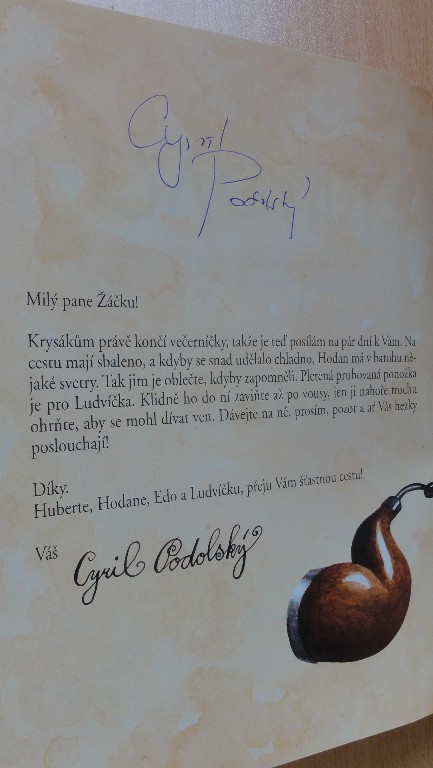 Cyril
Podolský
Milý pane Žáčku!
Krysákům právě končí večerníčky, takže je teď posílám na pár dní k Vám. Na
cestu mají sbaleno, a kdyby se snad udělalo chladno, Hodan má v batohu ně-
jaké svetry. Tak jim je oblečte, kdyby zapomněli. Pletená pruhovaná ponožka
je pro Ludvíčka. Klidně ho do ní zaviňte až po vousy, jen ji nahoře trochu
ohrňte, aby se mohl dívat ven. Dávejte na ně, prosím, pozor a ať Vás hezky
poslouchají!
Díky.
Huberte, Hodane, Edo a Ludvíčku, přeju Vám šťastnou cestu!
Váš
Cyril Podolský